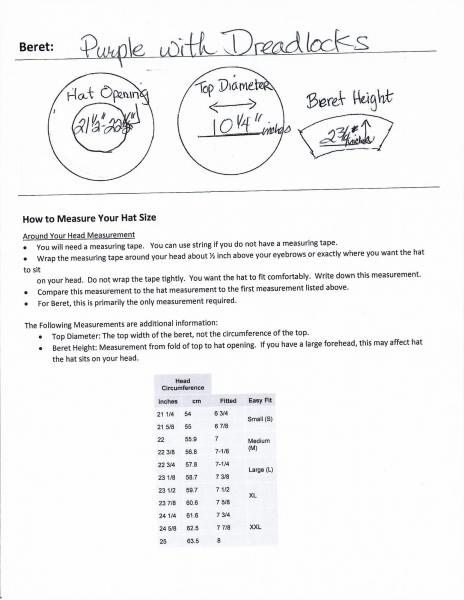 Beret: Purple with Dreadlocks
Hat Opening
Top Diameter
10 1/4" inches
Beret Height
inches
How to Measure Your Hat Size
Around Your Head Measurement
• You will need a measuring tape. You can use string if you do not have a measuring tape.
• Wrap the measuring tape around your head about ½ inch above your eyebrows or exactly where you want the hat
to sit
on your head. Do not wrap the tape tightly. You want the hat to fit comfortably. Write down this measurement.
• Compare this measurement to the hat measurement to the first measurement listed above.
• For Beret, this is primarily the only measurement required.
The Following Measurements are additional information:
• Top Diameter: The top width of the beret, not the circumference of the top.
• Beret Height: Measurement from fold of top to hat opening. If you have a large forehead, this may affect hat
the hat sits on your head.
Head
Circumference
inches cm Fitted Easy Fit
21 1/4 54 6 3/4
Small (S)
21 5/8 55 6 7/8
22 55.9 7
Medium
(M)
22 3/8 56.8 7-1/8
22 3/4 57.8 7-1/4
Large (L)
23 1/8 58.7 7 3/8
23 1/2 59.7 7 1/2
XL
23 7/8 60.6 7 5/8
24 1/4 61.6 7 3/4
24 5/8 62.5 7 7/8 XXL
25 63.5 8